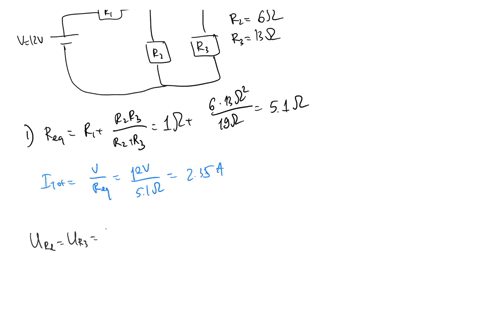 R₁
R₂ = 6Ω
V=12V
R₂
R₃
R₃ = 13Ω
1) Req = R₁ + R₂R₃/R₂+R₃ = 1Ω + 6·13Ω²/19Ω = 5.1Ω
Itot = V/Req = 12V/5.1Ω = 2.35A
UR₂ = UR₃ =